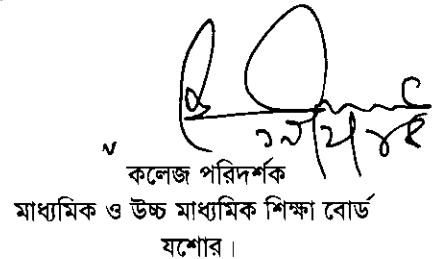 কলেজ পরিদর্শক
মাধ্যমিক ও উচ্চ মাধ্যমিক শিক্ষা বোর্ড
যশোর।